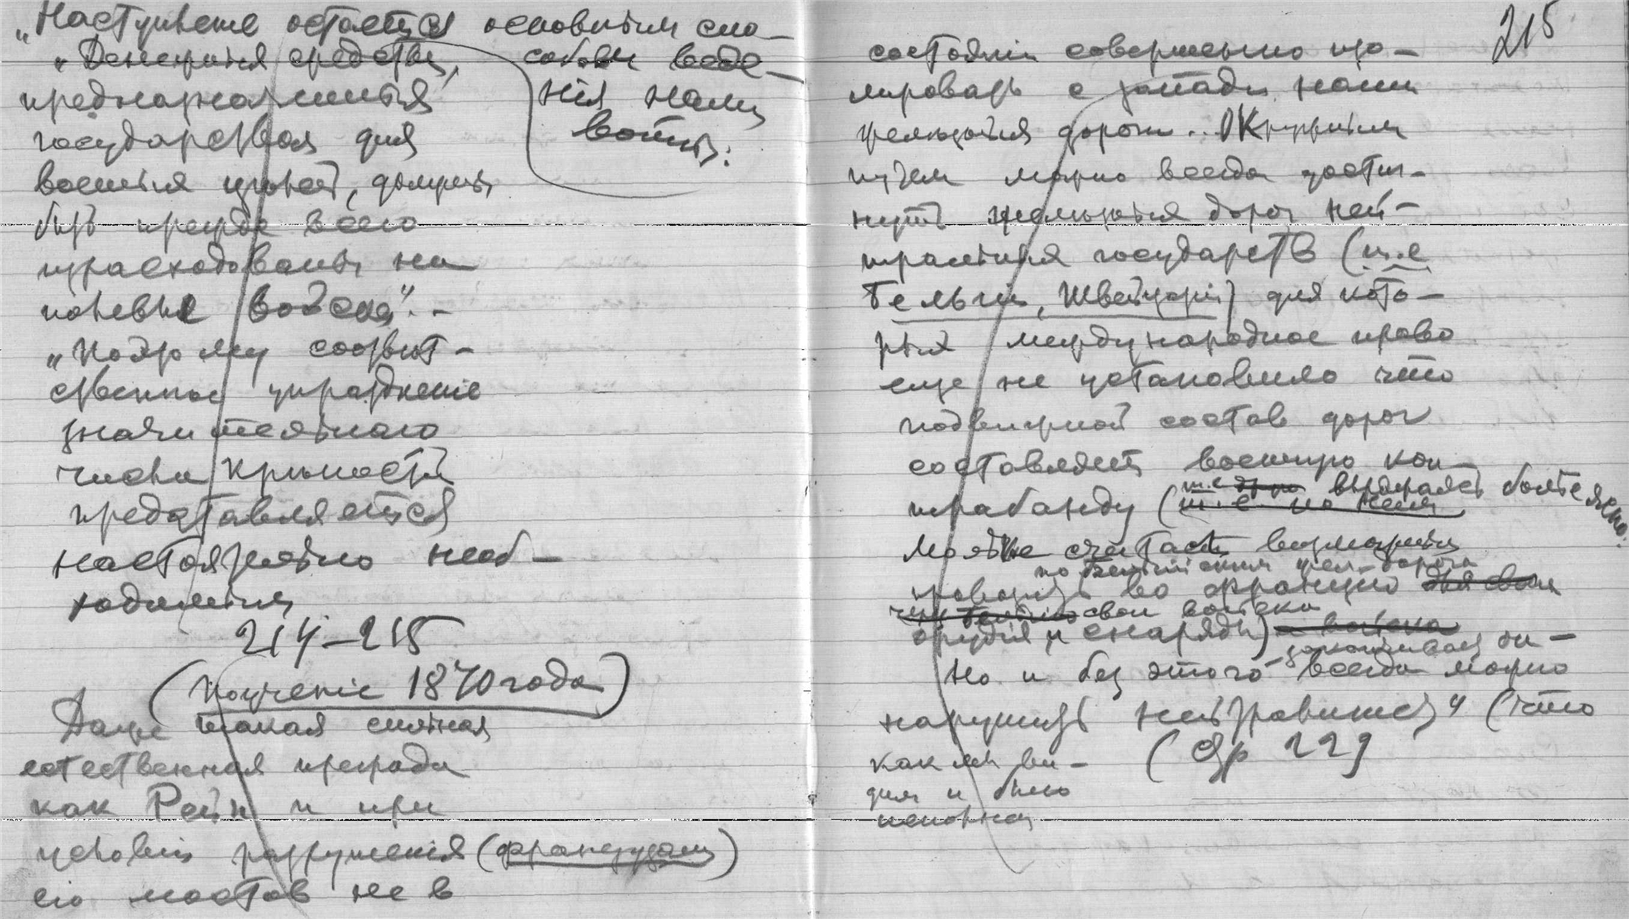 „Наступленiе остается основным спо-
собом веде-
нiя нами
войны:
„Денежныя средства,
предназначенныя
государством для
военных целей, должны
быть прежде всего
израсходованы на
полевыя войска". –
„Поэтому соответ-
ственное упразднение
значительнаго
числа крепостей
представляется
настоятельно необ-
ходимым
214–215
(Поученiе 1870 года)
Даже такая сильная
естественная преграда
как Рейн и при
условiи разрушенiя (французами)
его мостов не в
215
состоянiи совершенно изо-
лировать с запада наши
железныя дороги. Окружным
путем можно всегда достиг-
нуть железных дорог ней-
тральных государств (т.е.
Бельгiи, Швейцарiи) для кото-
рых международное право
еще не установило что
подвижной состав дорог
составляет военную кон-
трабанду (т.е. выражаясь более ясно:
можно считать возможным
по бельгiйским жел. дорогам
провозить во Францiю для свои
через Бельгiю свои войска
орудiя и снаряды) и войска
заканчивает он –
Но и без этого всегда можно
нарушить нейтралитет" (что
как мы ви-
дим и было
исполнен
(стр 229